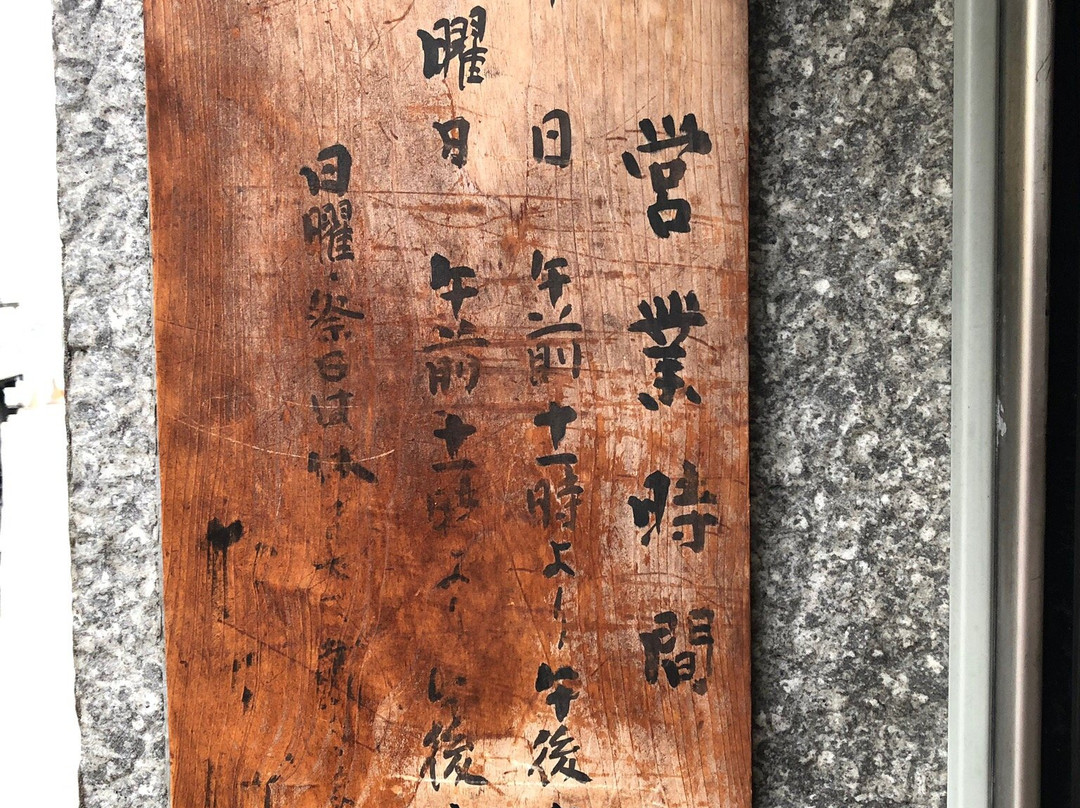 営業時間
日 午前十一時より午後
曜日 午前十一時より 午後
日曜・祭日は休